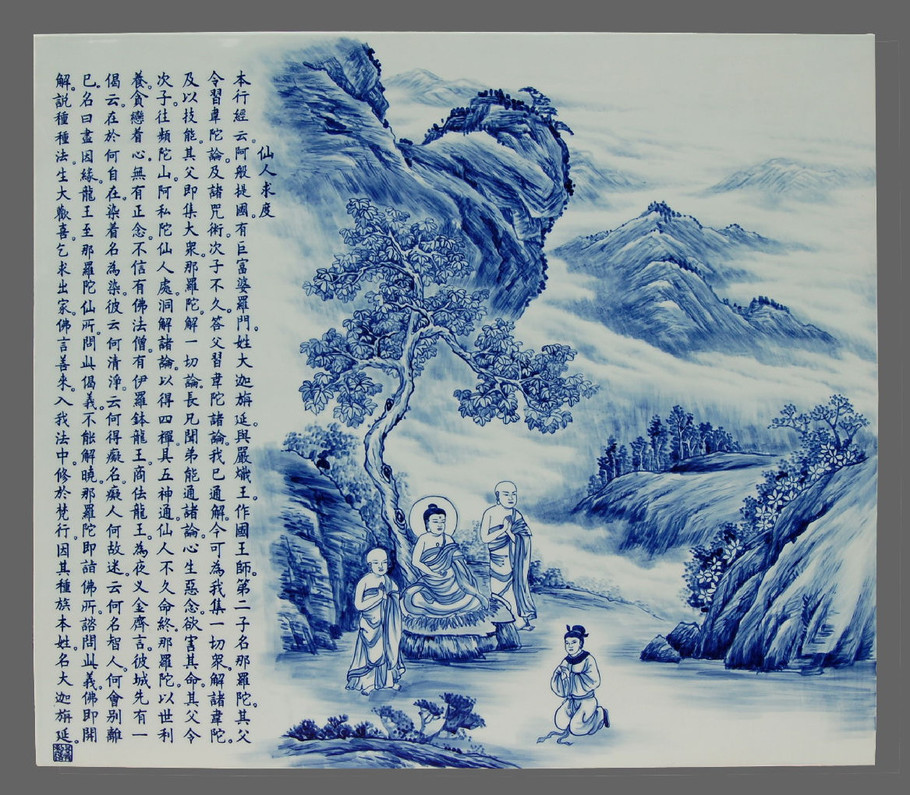 仙人求度
本行經云。阿般提國。有巨富婆羅門。姓大迦旃延。與嚴熾王。作國王師。第二子名那羅陀。其父
令習韋陀論。及諸咒術。次子不久。答父習韋陀諸論。我已通解。今可為我集一切眾。解諸韋陀。
及以技能。其父即集大眾。那羅陀。解一切論。長兄聞弟能通諸論。心生惡念。欲害其命。其父令
次子往頻陀山。阿私陀仙人處。洞解諸論。以得四禪。具五神通。仙人不久命終。那羅陀。以世利
養。貪戀着心。無有正念。不信有佛法僧。有伊羅鉢龍王。商佉龍王。為夜义金齊言。彼城先有一
偈云。在於何自在。染着名為染。彼云何清淨。云何得癡名。癡人何故迷。云何名智人。何會别離
已。名曰盡因緣。龍王至那羅陀仙所。問此偈義。不能解曉。那羅陀即詣佛所。諮問此義。佛即開
解。說種種法。生大歡喜。乞求出家。佛言善來。入我法中。修於梵行。因其種族本姓。名大迦旃延。